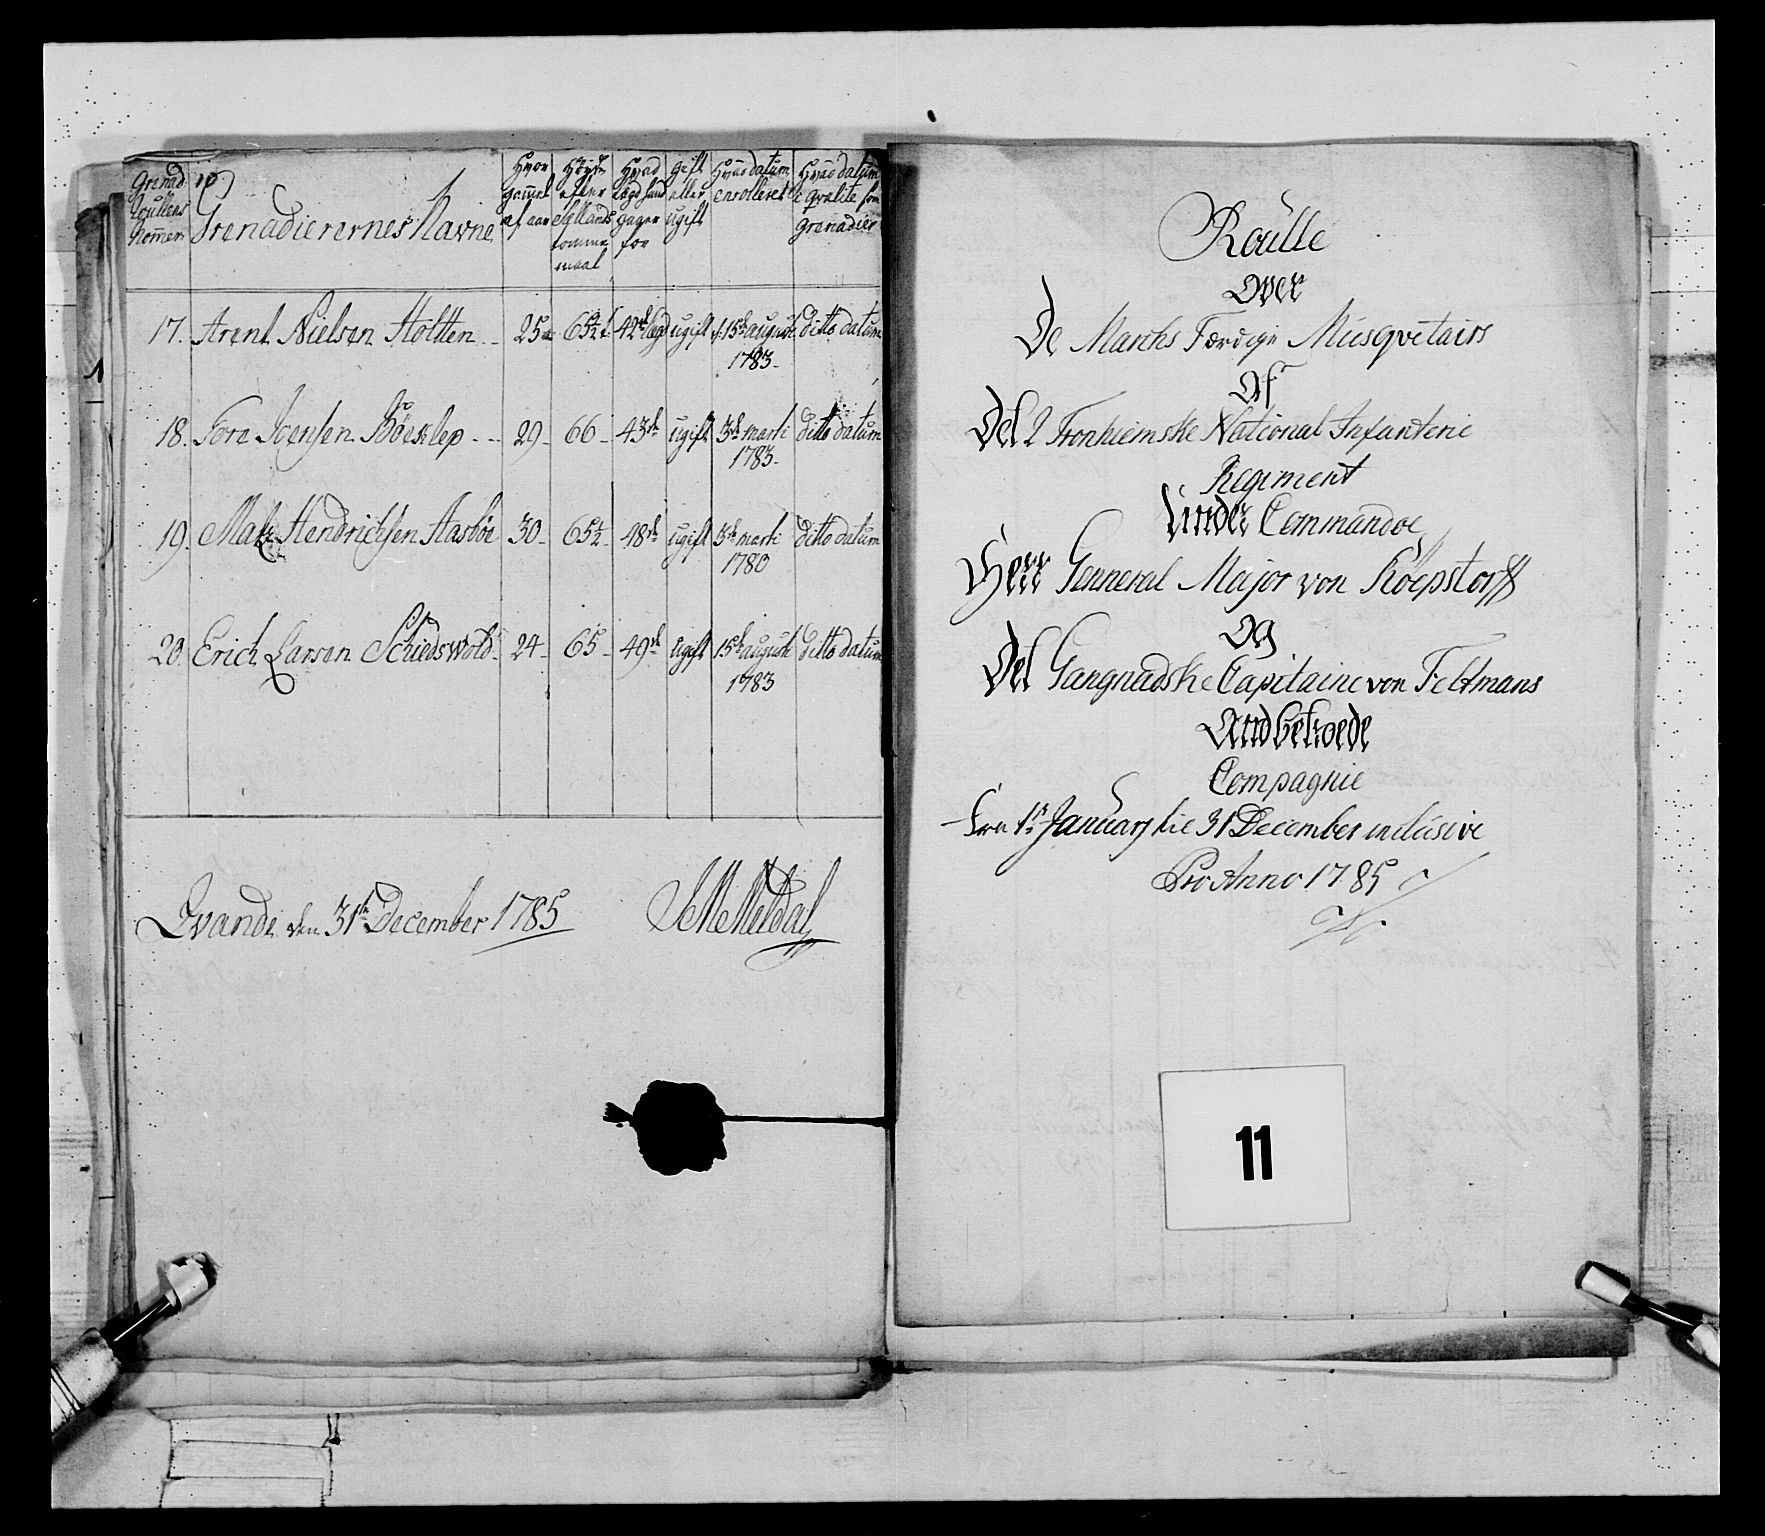 Grenad Roullens Nommer
Grenadierernes Navne
Hvor gammel af aar
Høyde efter Sællands tomme maal
Hvad lægd hand gager for
gift eller ugift
Hvad datum enrolleret
Hvad datum i qvalite som grenadier
17. Arent Nielsen Holtten 25 65½ 42de lægd ugift d: 15de august 1783 ditto datum
18. Tore Joensen 29 66 43de ugift 3de marti 1783 ditto datum
19. Matz Hendrichsen Aasbøe 30 65½ 48de ugift 3de marti 1780 ditto datum
20. Erich Larsen Schiedswold 24 65 49de ugift 15de august 1783 ditto datum
Qvande den 31te December 1785
1
Roulle
Over
De Marchs Færdige Musqvetairs
Af
Det 2 Tronhiemske National Infanterie
Regiment
Under Commandoe
Herr Genneral Major von Røepstorff
Og
Det Gangnadske Capitaine von Feltmans
Andbetroede
Compagnie
Fra 1te January til 31 December inclusive
Pro Anno 1785
11